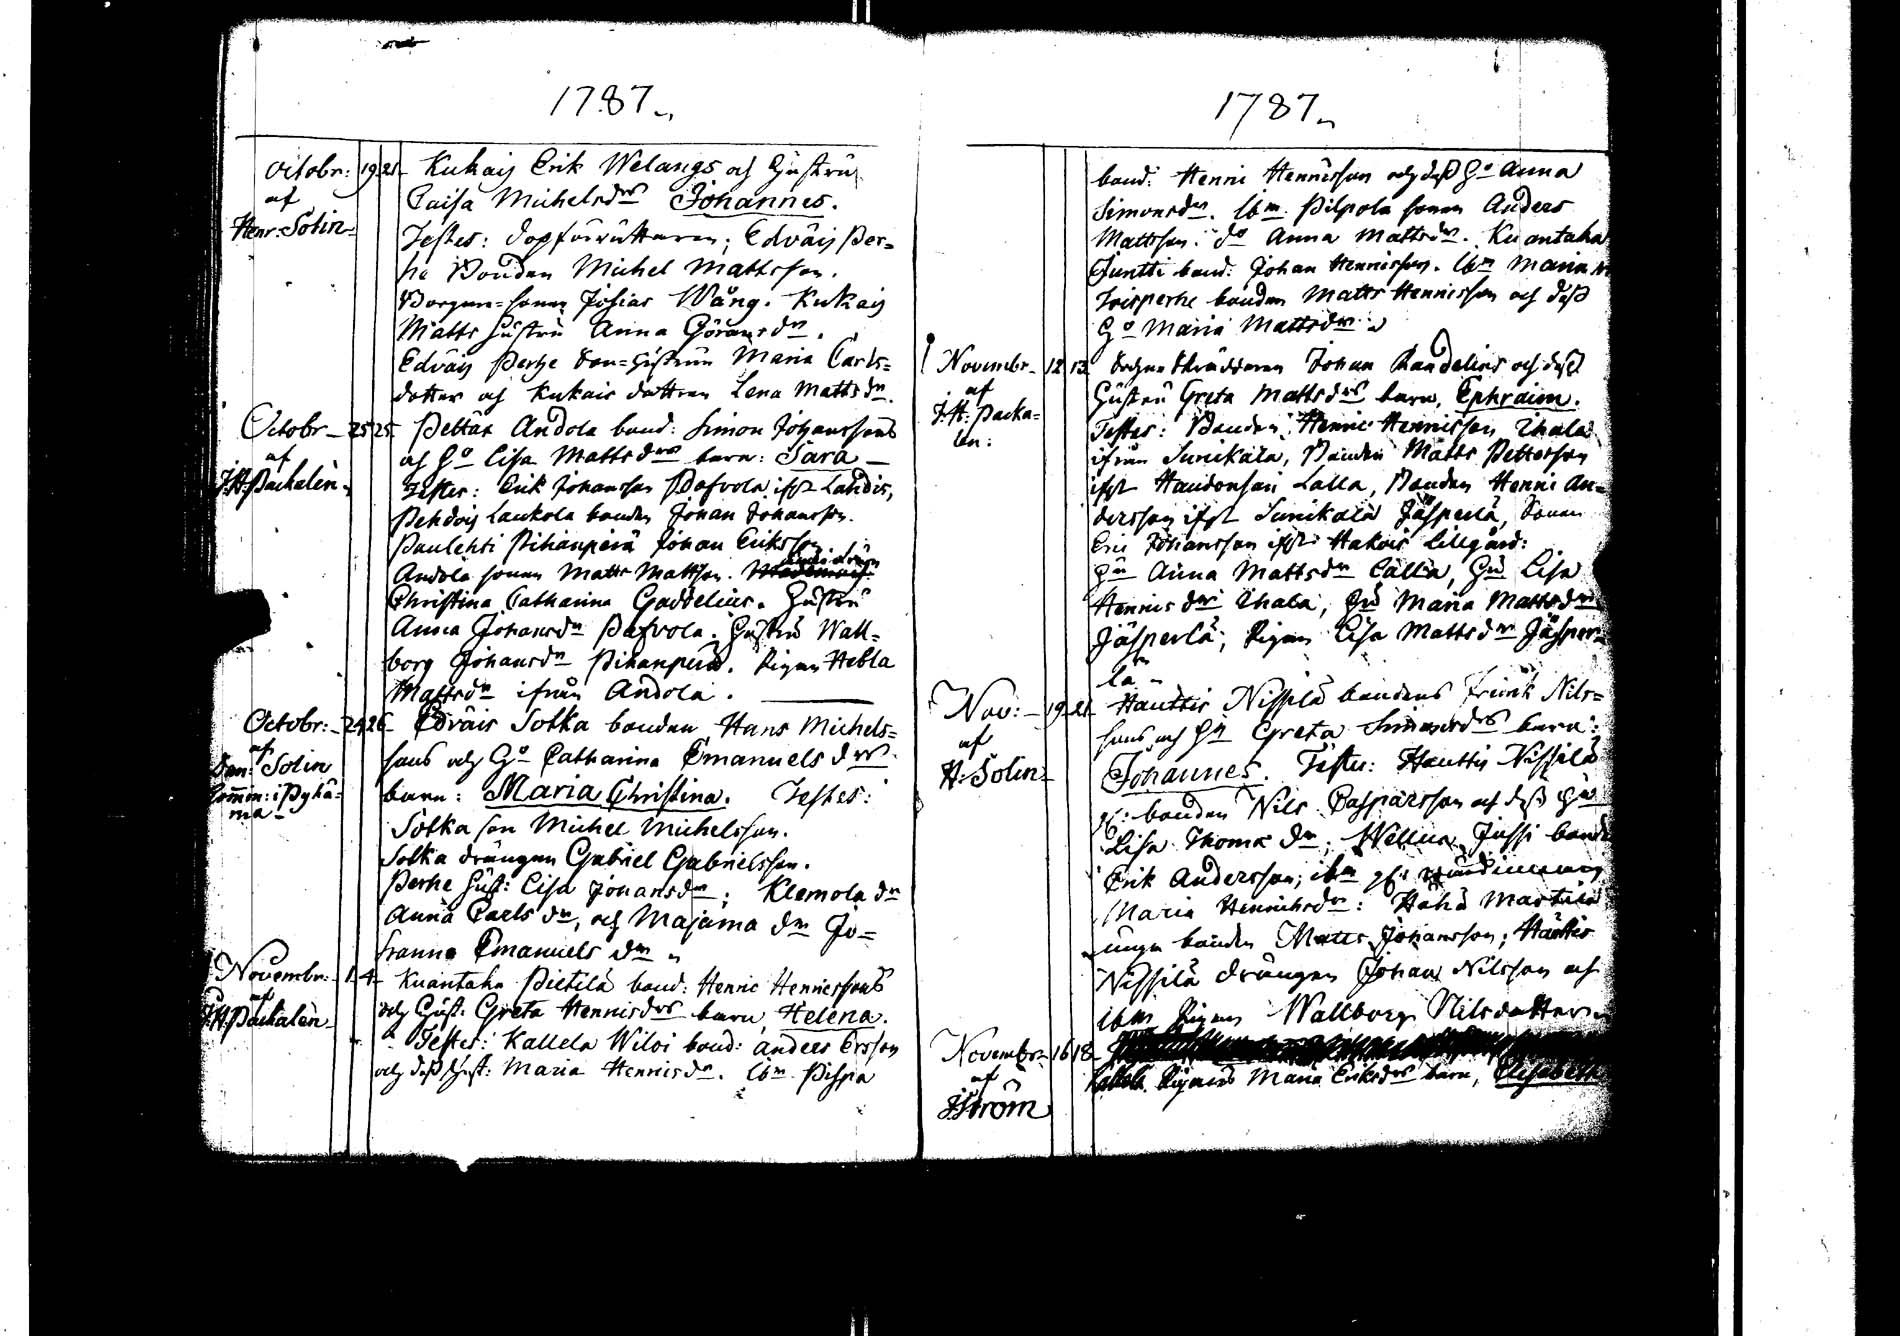 1787.
Octobr: 19 21 Kukais Erik Welangs och Hustru
af
Henr: Solin
Caisa Michelsdrs Johannes.
Testes: dopförrättaren; Edväis Per-
he Bonden Michel Mattsson.
Josias Wång. Kukais
Matts Hustru Anna Göransdr.
Edväis Perhe Hustrun Maria Carls-
dotter och Kukais dottren Lena Mattsdr.
Octobr 25 25 Pettäs Andola bond: Simon Johanssons
af
J.H. Packalén
och Ho Lisa Mattsdrs barn: Sara
Testes: Erik Johansson Pafvola ifr Landis,
Laukola bonden Johan Johansson.
Paulehti Pihanperä Johan Eriksson
Andola sonen Matts Mattson.
Christina Catharina Gaddelius. Hustru
Anna Johansdr Pafvola. Hustru Wall-
borg Johansdr Pihanperä. Pigan Hebla
Mattsdr ifrån Andola.
Octobr: 24 26 Edväis Sotka bonden Hans Michels-
af
Dan: Solin
Comm: i Pyhä-
ma
sons och Ho Catharina Emanuels drs
barn: Maria Christina. Testes:
Sotka son Michel Michelsson.
Sotka drängen Gabriel Gabrielsson.
Perhe Hust: Lisa Johansdr; Klemola dr
Anna Carls dr, och Majama dr Jo-
hanna Emanuels dr
Novembr: 1 4 Kuantaka Pietilä bond: Henric Hennerssons
af
J.H. Packalén
och Hust. Greta Hennisdrs barn, Helena.
Testes: Kallela Wiloi bond: Anders Ersson
och dess Hust: Maria Hennisdr. Ibm Pispa
1787.
bond: Henric Henricsson och dess Ho Anna
Simonsdr. Ibm Pilpola sonen Anders
Mattsson. do Anna Mattsdr. Kuantaka
Juntti bond: Johan Hennisson. Ibm Maria
bonden Matts Hennisson och dess
Ho Maria Mattsdr
Novembr 12 13 Johan Randelius och dess
af
J.H. Packa-
len:
Hustru Greta Mattsdrs barn, Ephraim.
Testes: Bonden Henric Hennisson Ihala
ifrån Sunikala, Bonden Matts Pettersson
ifr Lalla, Bonden Henric An-
dersson ifr Sunikala Jäsperlä, Sonen
Eric Johansson ifr Hakois Lillgård:
Hu Anna Mattsdr Lalla, Hu Lisa
Hennis dr Ihala, Hu Maria Mattsdr
Jäsperlä; Pigan Lisa Mattsdr Jäsper-
lä
Nov: 19 21 Hauttis Nissilä bondens Nils-
af
H: Solin
sons och Hu Greta Simonsdrs barn:
Johannes. Testes: Hauttis Nissilä
gl: bonden Nils Caspärsson och dess Hu
Lisa Thomæ dr; Wellua Jussi bond
Erik Andersson; ibm
Maria Henrichsdr: Hähä Marttila
unga bonden Matts Johansson; Hauttis
Nissilä drängen Johan Nilsson och
ibm Pigan Wallborg Nilsdotter
Novembr 16 18
af
J: Ström
Kallela Pigans Maria Eriksdrs barn, Elisabeth